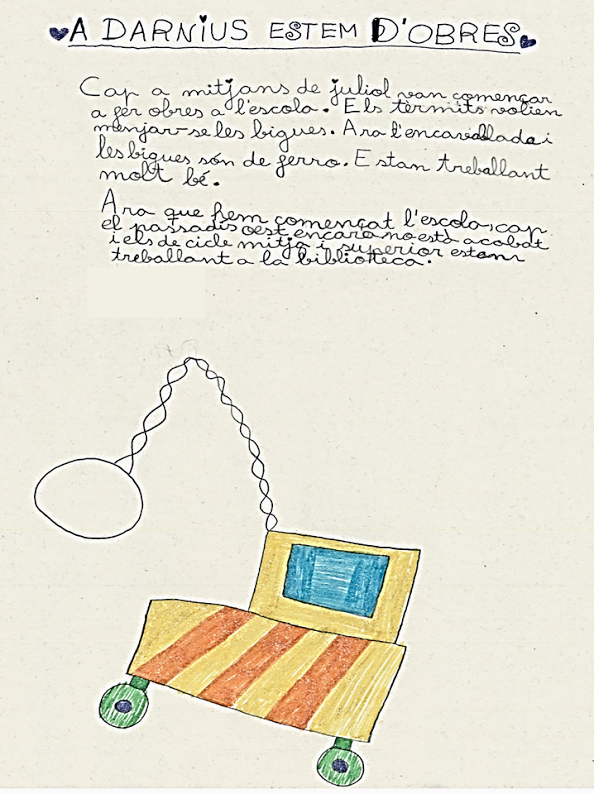 A DARNIUS ESTEM D'OBRES
Cap a mitjans de juliol van començar
a fer obres a l'escola. Els tèrmits volien
menjar-se les bigues. Ara l'encavallada i
les bigues són de ferro. Estan treballant
molt bé.
Ara que hem començat l'escola, cap
el passadís oest encara no està acabat
i els de cicle mitjà i superior estem
treballant a la biblioteca.